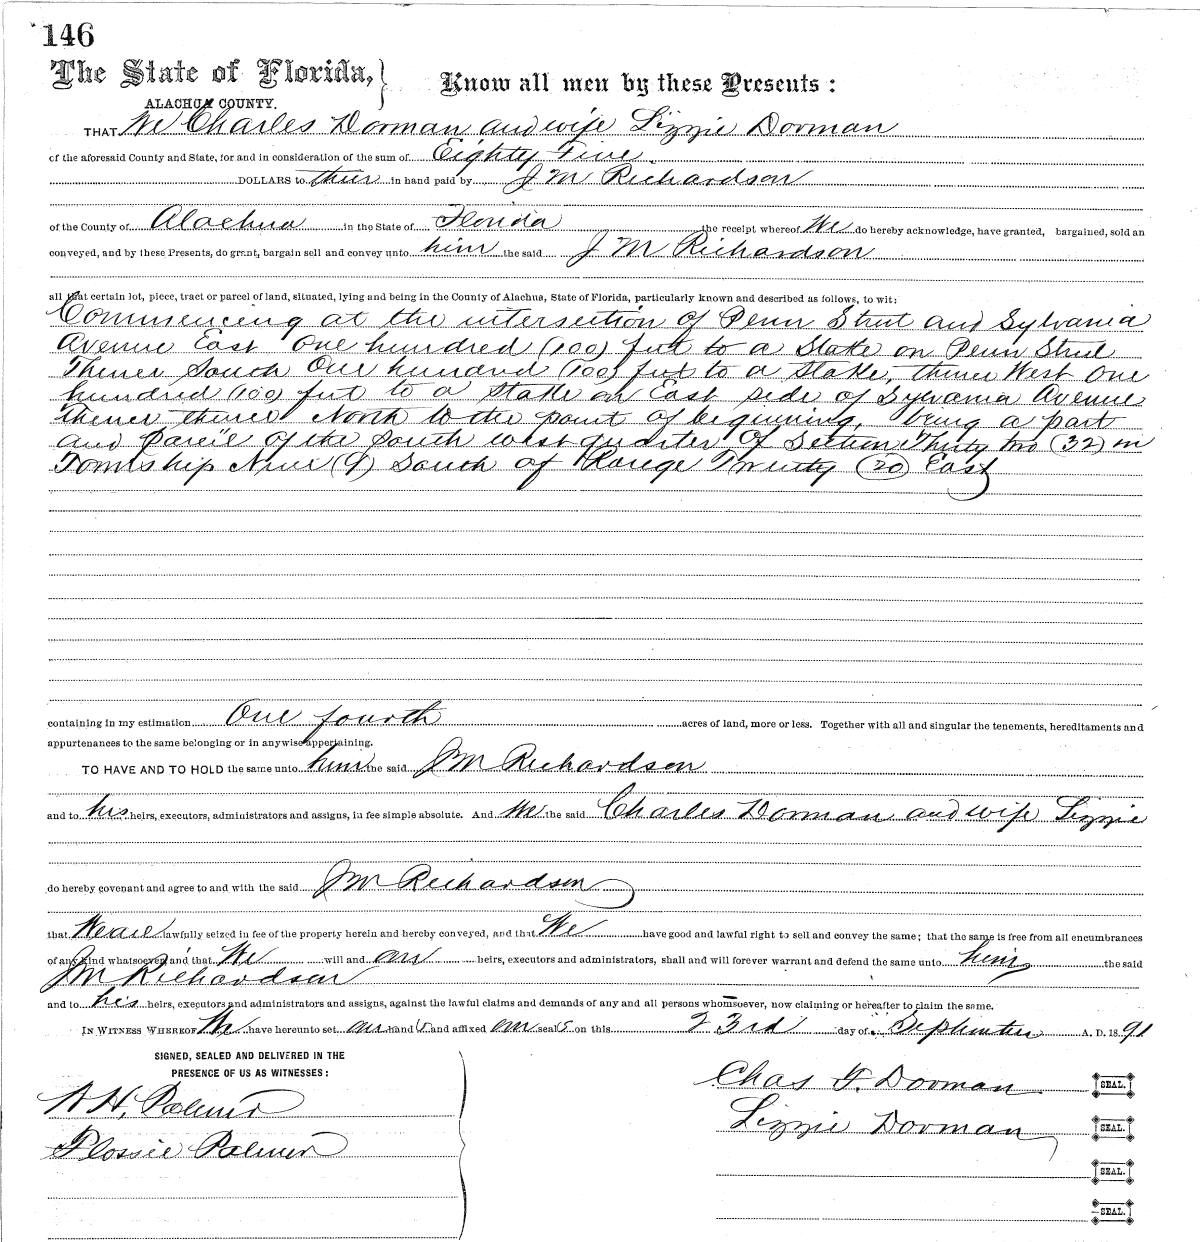 146
The State of Florida,
ALACHUA COUNTY.
Know all men by these Presents:
THAT We Charles Dorman and wife Lizzie Dorman
of the aforesaid County and State, for and in consideration of the sum of Eighty Five
DOLLARS to their in hand paid by J M Richardson
of the County of Alachua in the State of Florida the receipt whereof We do hereby acknowledge, have granted, bargained, sold an
conveyed, and by these Presents, do grant, bargain sell and convey unto him the said J M Richardson
all that certain lot, piece, tract or parcel of land, situated, lying and being in the County of Alachua, State of Florida, particularly known and described as follows, to wit:
Commencing at the intersection of Penn Street and Sylvania
Avenue East One hundred (100) feet to a Stake on Penn Street
Thence South One hundred (100) feet to a Stake, thence West One
hundred (100) feet to a stake on East side of Sylvania Avenue
thence thence North to the point of beginning, being a part
and parcel of the South west quarter of Section Thirty two (32) in
Township Nine (9) South of Range Twenty (20) East
containing in my estimation One fourth acres of land, more or less. Together with all and singular the tenements, hereditaments and
appurtenances to the same belonging or in anywise appertaining.
TO HAVE AND TO HOLD the same unto him the said J M Richardson
and to his heirs, executors, administrators and assigns, in fee simple absolute. And We the said Charles Dorman and wife Lizzie
do hereby covenant and agree to and with the said J M Richardson
that We are lawfully seized in fee of the property herein and hereby conveyed, and that We have good and lawful right to sell and convey the same; that the same is free from all encumbrances
of any kind whatsoever and that We will and our heirs, executors and administrators, shall and will forever warrant and defend the same unto him the said
J M Richardson
and to his heirs, executors and administrators and assigns, against the lawful claims and demands of any and all persons whomsoever, now claiming or hereafter to claim the same.
IN WITNESS WHEREOF We have hereunto set our hands and affixed our seals on this 23rd day of September A. D. 1891
SIGNED, SEALED AND DELIVERED IN THE
PRESENCE OF US AS WITNESSES:
Chas F. Dorman SEAL.
Palmer
Lizzie Dorman SEAL.
Flossie Palmer
SEAL.
SEAL.